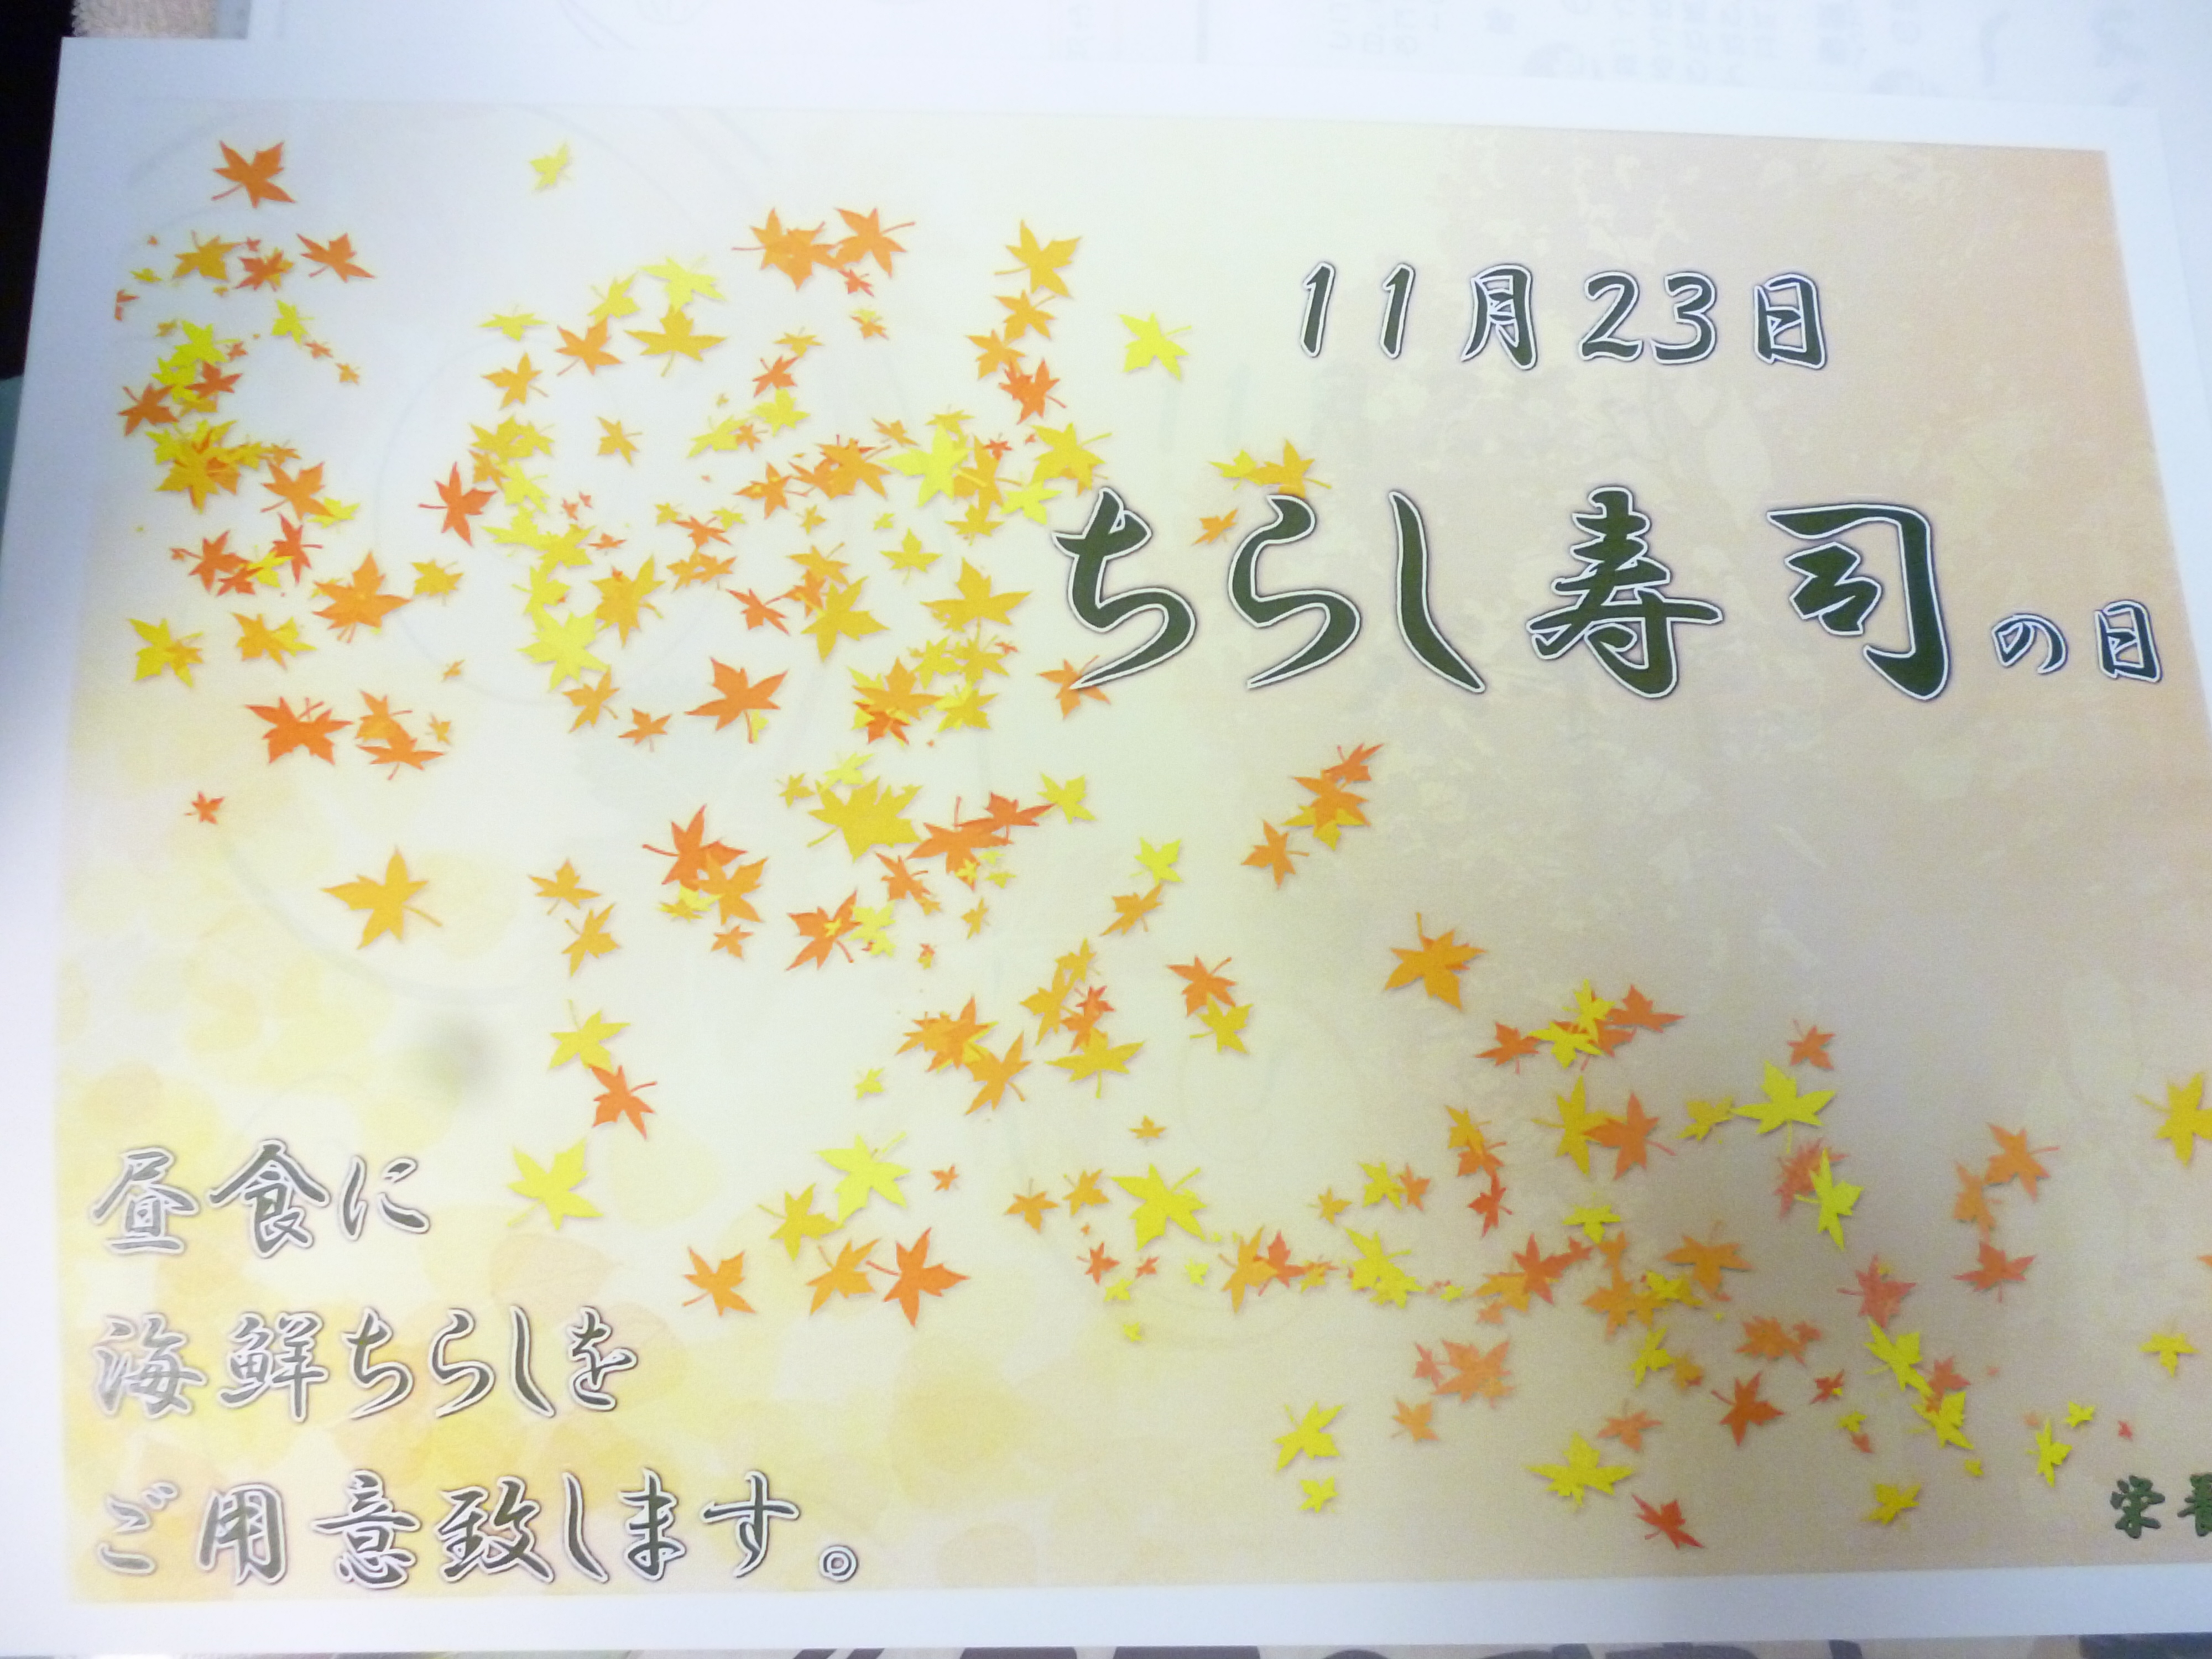 11月23日
ちらし寿司の日
昼食に
海鮮ちらしを
ご用意致します。
栄養